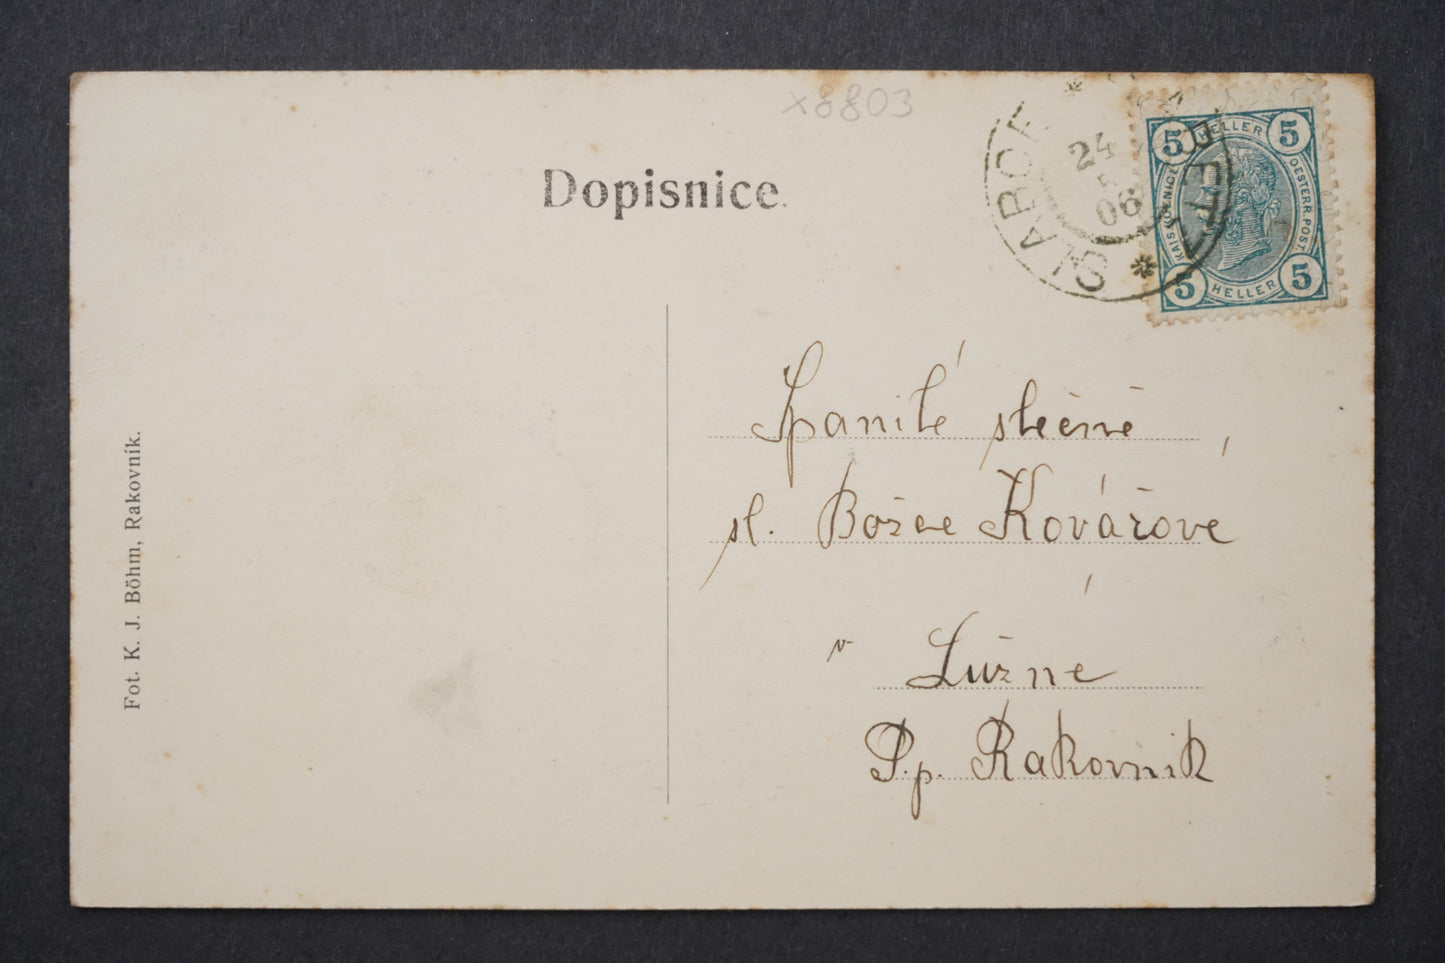 x8803
Dopisnice.
24
06
5 HELLER 5
KAIS. KOENIGL.
OESTERR. POST.
5 HELLER 5
Spanilé slečně
sl. Božce Kovářové
v Lúžné
P.p. Rakovník
Fot. K. J. Böhm, Rakovník.